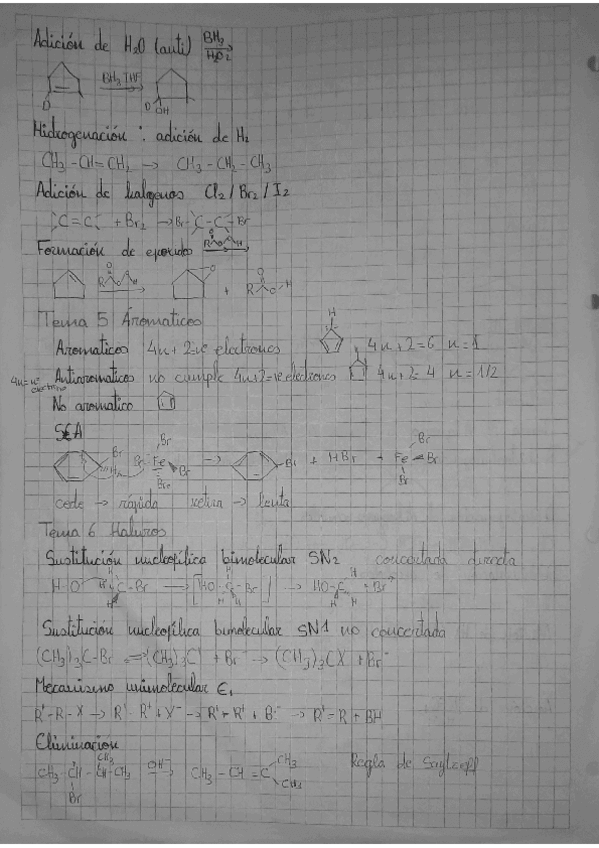 Adición de H2O (anti) BH3 / H2O2
BH3 THF
D D OH
Hidrogenación : adición de H2
CH3 - CH = CH2 → CH3 - CH2 - CH3
Adición de halogenos Cl2 / Br2 / I2
C = C + Br2 → Br - C - C - Br
Formación de epoxidos
R O O H O + R O H
Tema 5 Áromaticos
Aromaticos 4n + 2 = nº electrones H 4n + 2 = 6 n = 1
4n = nº electrones Antiaromaticos no cumple 4n+2 = nº electrones 4n + 2 = 4 n = 1/2
No aromatico
SEA
Br Br Fe Br → Br + HBr + Fe Br Br Br
cede → rápida retira → lenta
Tema 6 Haluros
Sustitución nucleofílica bimolecular SN2 concertada directa
H - O C - Br → [HO - C - Br] → HO - C H H H + Br-
Sustitución nucleofílica bimolecular SN1 no concertada
(CH3)3C-Br ⇌ (CH3)3C+ + Br- → (CH3)3CX + Br-
Mecanismo unimolecular E1
R' - R - X → R' - R+ + X- → R' + R+ + B- → R' = R + BH
Eliminación
CH3 - CH - CH - CH3 OH- CH3 - CH = C CH3 CH3 Regla de Saytzeff
CH3 Br